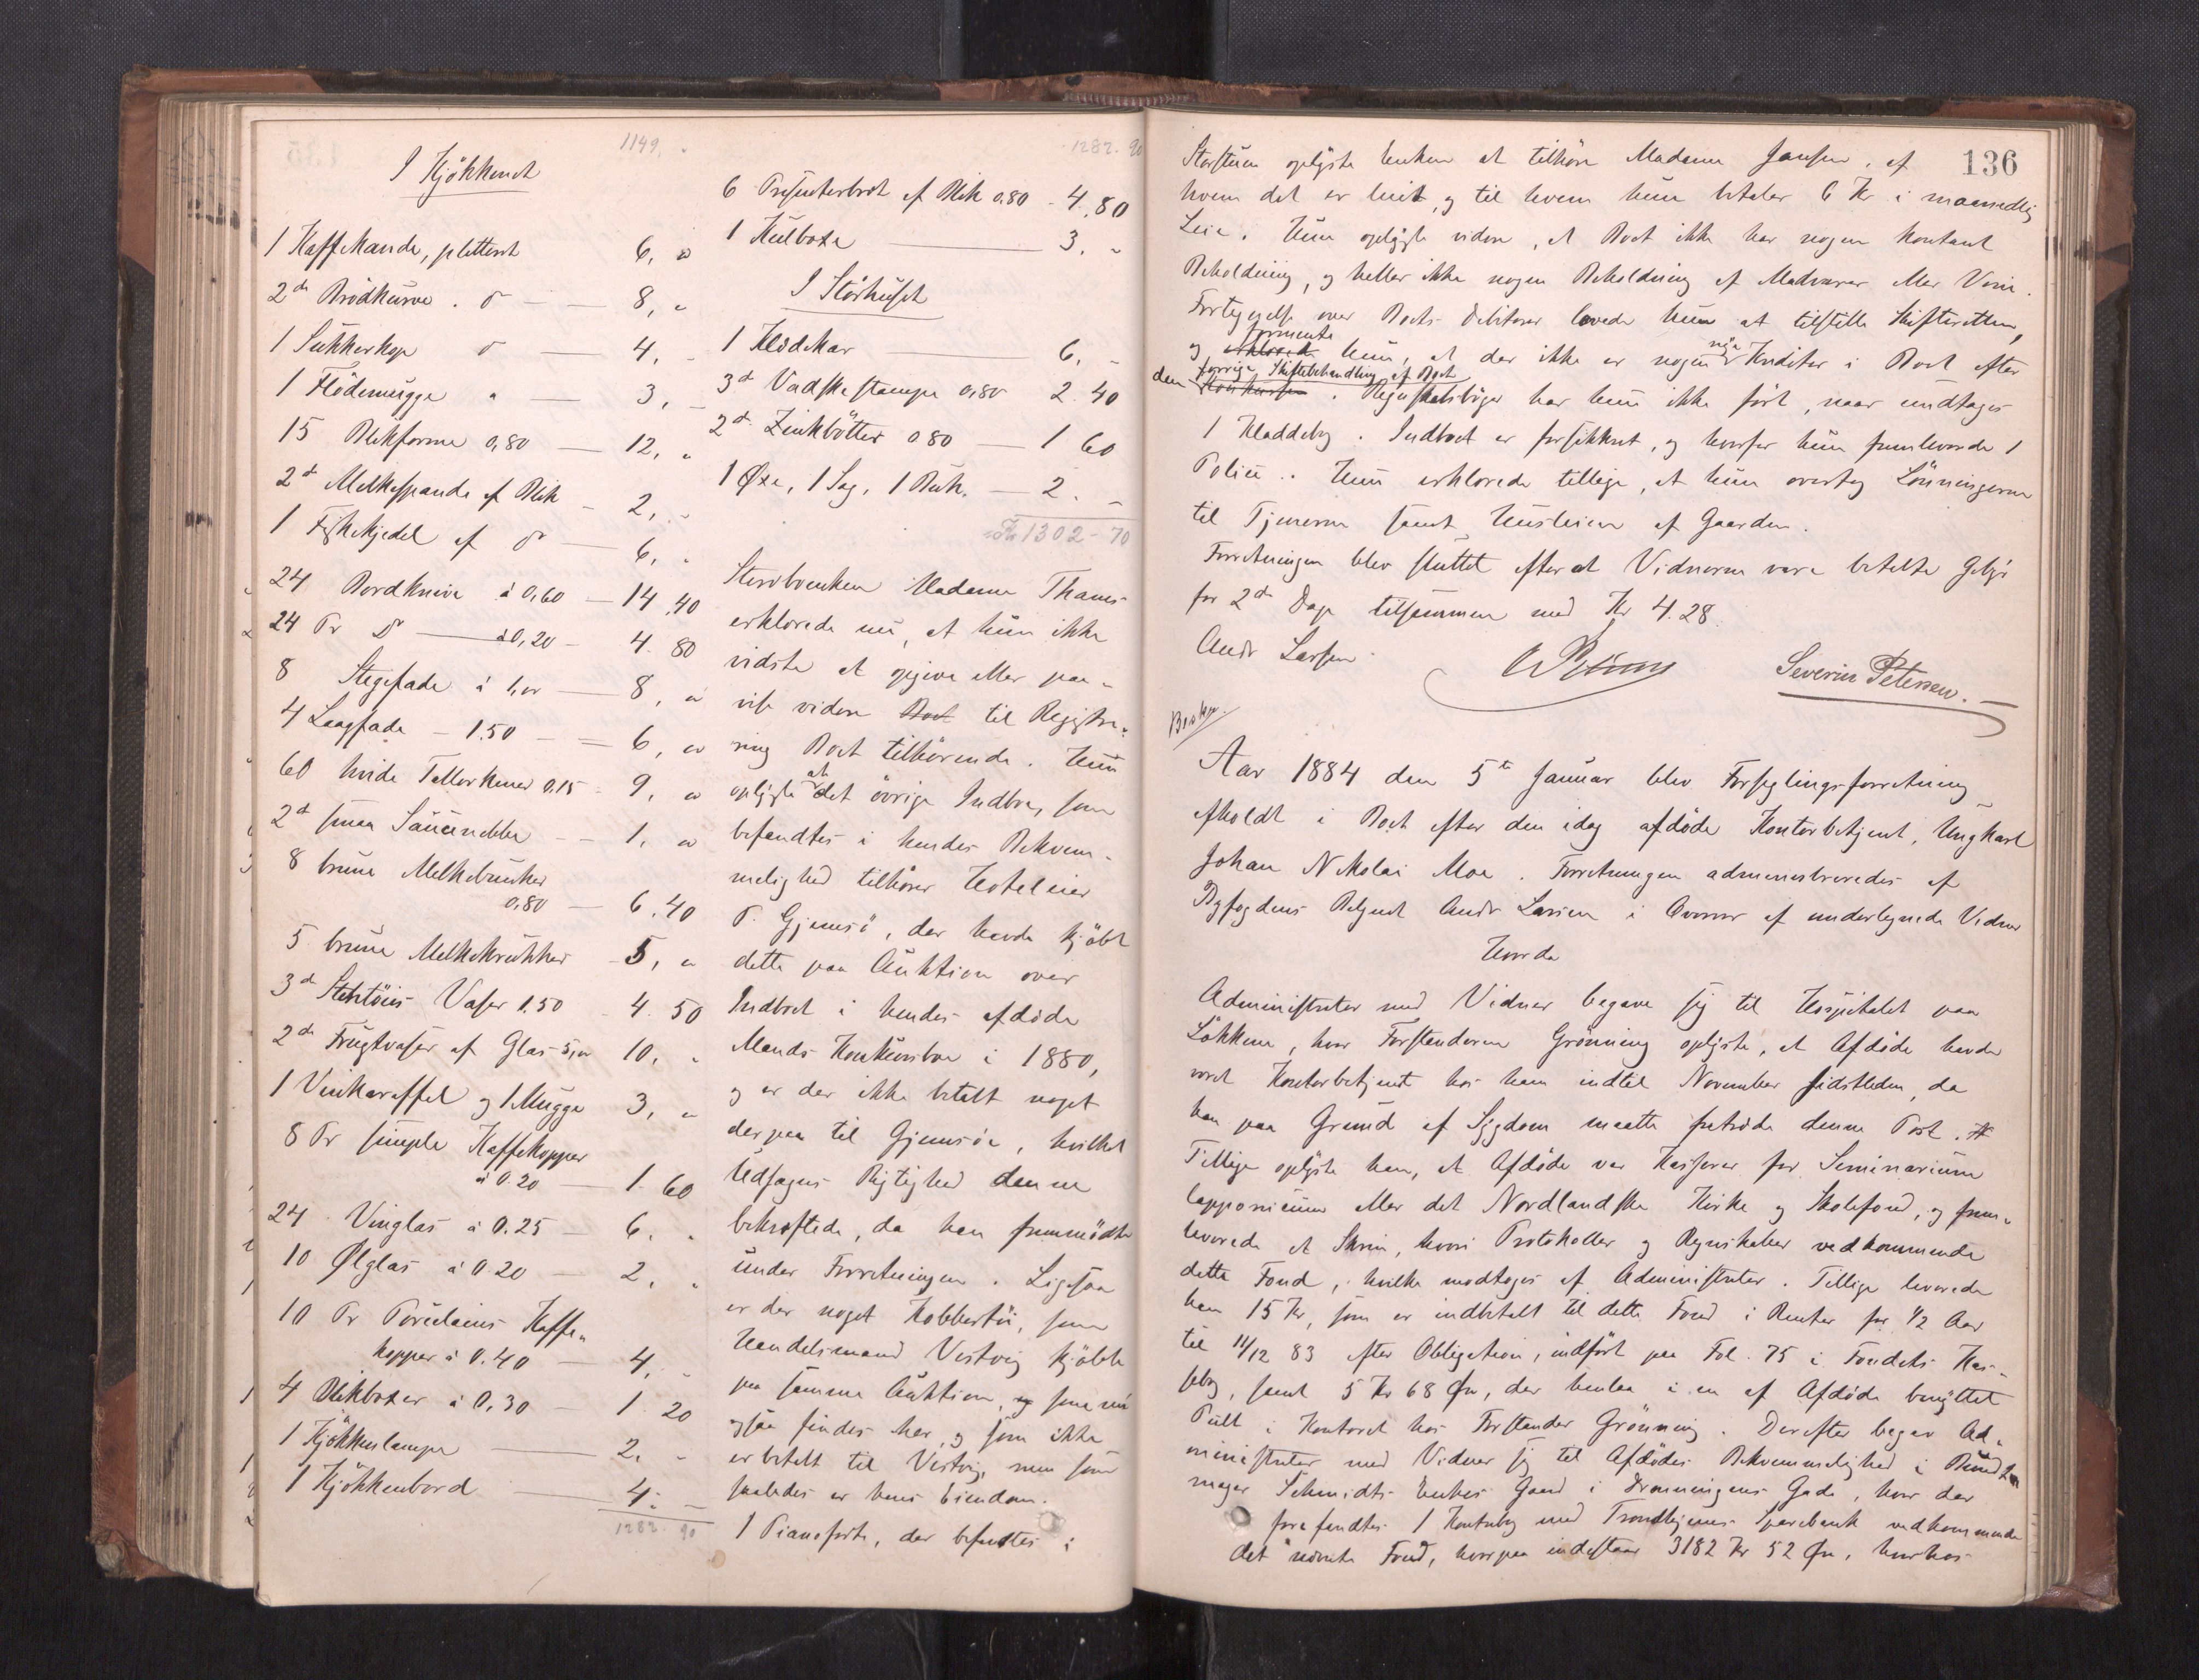 1149. "
I Kjökkenet
1 Kaffekande, pletteret 6, "
2de Brödkurve do 8, "
1 Sukkerkop do 4, "
1 Flödemugge " 3, "
15 Blikforme 0,80 12, "
2de Melkespande af Blik 2, "
1 Fiskekjedel af do 6, "
24 Bordknive à 0,60 14,40
24 Pr Do à 0,20 4.80
8 Stegefade à 1,oo 8, "
4 Laagfade 1.50 6, oo
60 hvide Tallerkener 0.15 9, oo
2de smaa Saucenebbe 1, oo
8 brune Melkebunker
0.80 6.40
5 brune Melkekrukker 5, "
3de Stentöis Vaser 1.50 4.50
2de Frugtvaser af Glas 5,oo 10, "
1 Vinkaraffel og 1 Mugge 3, "
8 Pr simple Kaffekopper
à 0.20 1.60
24 Vinglas à 0.25 6. "
10 Ølglas à 0.20 2, "
10 Pr Porcelains Kaffe-
kopper à 0.40 4, "
4 Blikboxer à 0,30 1.20
1 Kjökkenlampe 2. "
1 Kjökkenbord 4. "
1282.90
1282.90
6 Presenterbret af Blik 0.80 4.80
1 Kulboxe 3. "
I Störhuset
1 Klædekar 6, "
3de Vadskestampe 0,80 2.40
2de Zinkbötter 0.80 1 60
1 Øxe, 1 Sag, 1 Buk. 2. "
Kr 1302-70
Stervboenken Madame Thams
erklærede nu, at hun ikke
vidste at opgive eller paa-
vise videre Boet til Registre-
ring Boet tilhörende. Hun
oplyste at det övrige Indbo, som
befandtes i hendes Bekvem-
melighed tilhörer Hoteleier
P. Gjemsö, der havde kjöbt
dette paa Auktion over
Indboet i hendes afdöde
Mands Konkursbo i 1880,
og er der ikke betalt noget
derpaa til Gjemsöe, hvilket
Udsagns Rigtighed denne
bekræftede, da han fremmödte
under Forretningen. Ligesaa
er der noget Kobbertöi, som
Handelsmand Vestvig kjöbte
paa samme Auktion, og som nu
ogsaa findes her, og som ikke
er betalt til Vestvig, men som
saaledes er hans Eiendom.
1 Pianoforte, der befandtes i
136
Storstuen oplyste Enken at tilhöre Madame Jansen, af
hvem det er leiet, og til hvem hun betaler 6 Kr i maanedlig
Leie. Hun oplyste videre, at Boet ikke har nogen Kontant
Beholdning, og heller ikke nogen Beholdning af Madvarer eller Vine.
Fortegnelse over Boets Debitorer lovede hun at tilstille Skifteretten,
formente
og erklærede hun, at der ikke er nogen nye Kreditor i Boet efter
forrige Skiftebehandling af Boet
den Konkursen. Regnskabsböger har hun ikke fört, naar undtages
1 Kladdebog. Indboet er forsikkret, og hvorfor hun fremleverede 1
Police. Hun erklærede tillige, at hun overtog Lönningerne
til Tjenerne samt Husleien af Gaarden.
Forretningen blev sluttet efter at Vidnerne vare betalte Gebyr
for 2de Dage tilsammen med Kr 4.28.
Andr Larsen
Severin Petersen.
Aar 1884 den 5te Januar blev Forseglingsforretning
afholdt i Boet efter den idag afdöde Kontorbetjent, Ungkarl
Johan Nikolai Moe. Forretningen administreredes af
Byfogdens Betjent Andr Larsen i Overvær af undertegnede Vidner
Hvorda
Administrator med Vidner begave sig til Hospitalet paa
Lökken, hvor Forstanderen Grönning oplyste, at Afdöde havde
været Kontorbetjent hos ham indtil November sidstleden, da
han paa Grund af Sygdom maatte fratræde denne Post.
Tillige oplyste han, at Afdöde var Kasserer for Seminarium
lapponicum eller det Nordlandske Kirke og Skolefond, og frem-
leverede et Skrin, hvori Protokoller og Regnskaber vedkommende
dette Fond, hvilke modtoges af Administrator. Tillige leverede
han 15 Kr, som er indbetalt til dette Fond i Renter for 1/2 Aar
til 11/12 83 efter Obligation, indfört paa Fol. 75 i Fondets Kas-
sebog, samt 5 Kr 68 Øre, der henlaa i en af Afdöde benyttet
Pult i Kontoret hos Forstander Grönning. Derefter begav Ad-
ministrator med Vidner sig til Afdödes Bekvemmelighed i Bundt-
mager Schmidts Enkes Gaard i Dronningens Gade, hvor der
forefandtes 1 Kontrabog med Trondhjems Sparebank vedkommende
det nævnte Fond, hvorpaa indestaar 3182 Kr 52 Øre, hvorhos